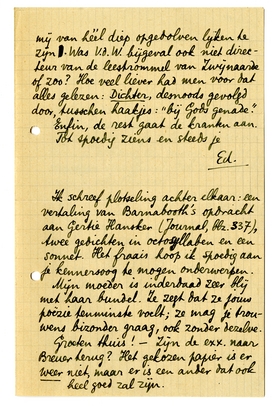 mij van héél diep opgebolven lijken te
zijn. Was V.d.W. bijgeval ook niet direc-
teur van de leestrommel van Zwijnaarde
of zoo? Hoe veel liever had men voor dat
alles gelezen: Dichter, desnoods gevolgd
door, tusschen haakjes: "bij Gods genade".
Enfin, de rest gaat de kranten aan.
Tot spoedig ziens en steeds je
Ed.
Ik schreef plotseling achter elkaar: een
vertaling van Barnabooth's opdracht
aan Gertie Hansker (Journal, blz. 337),
twee gedichten in octosyllaben en een
sonnet. Het fraais hoop ik spoedig aan
je kennersoog te mogen onderwerpen.
Mijn moeder is inderdaad zeer blij
met haar bundel. Ze zegt dat ze jouw
poëzie tenminste voelt; ze mag je trou-
wens bizonder graag, ook zonder dezelve.
Groeten thuis! — Zijn de exx. naar
Breuer terug? Het gekozen papier is er
weer niet, maar er is een ander dat ook
heel goed zal zijn.